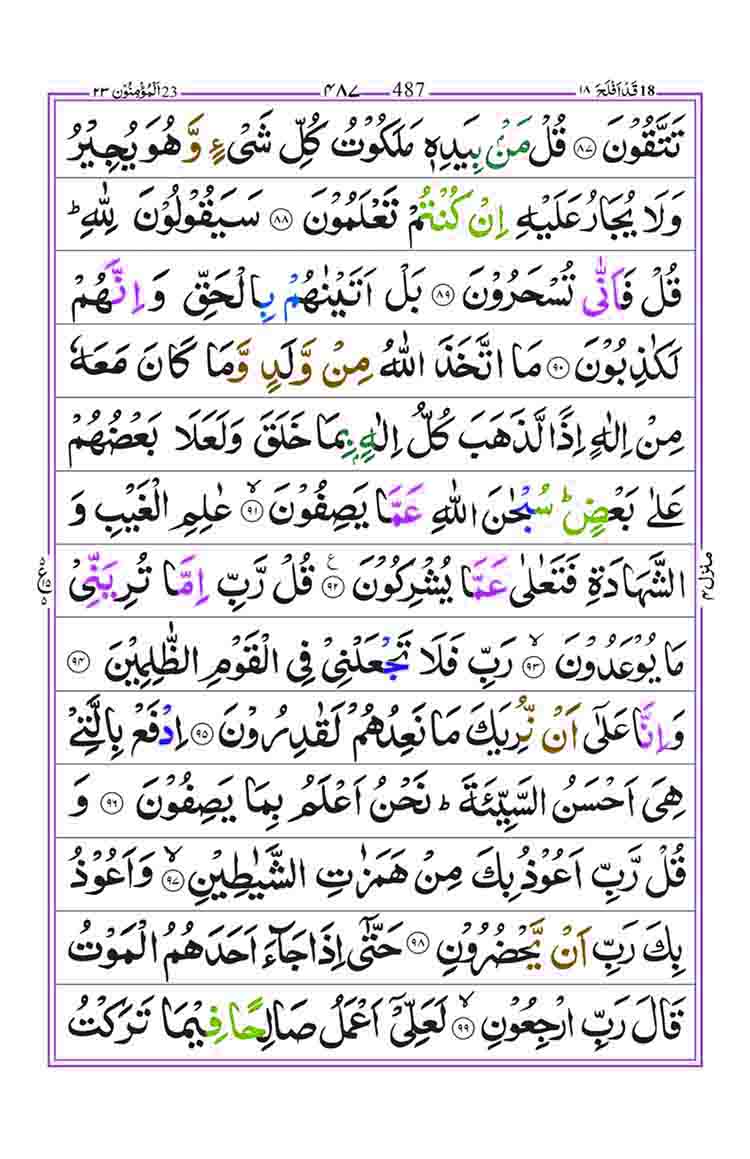 18 قَدْ اَفْلَحَ ۱۸ 487 ۴۸۷ 23 اَلْمُؤْمِنُوْن ۲۳
تَتَّقُوْنَ ۝۸۷ قُلْ مَنْۢ بِيَدِهٖ مَلَكُوْتُ كُلِّ شَیْءٍ وَّ هُوَ يُجِيْرُ
وَلَا يُجَارُ عَلَيْهِ اِنْ كُنْتُمْ تَعْلَمُوْنَ ۝۸۸ سَيَقُوْلُوْنَ لِلّٰهِ ؕ
قُلْ فَاَنّٰى تُسْحَرُوْنَ ۝۸۹ بَلْ اَتَيْنٰهُمْ بِالْحَقِّ وَ اِنَّهُمْ
لَكٰذِبُوْنَ ۝۹۰ مَا اتَّخَذَ اللّٰهُ مِنْ وَّلَدٍ وَّمَا كَانَ مَعَهٗ
مِنْ اِلٰهٍ اِذًا لَّذَهَبَ كُلُّ اِلٰهٍۭ بِمَا خَلَقَ وَلَعَلَا بَعْضُهُمْ
عَلٰى بَعْضٍ ؕ سُبْحٰنَ اللّٰهِ عَمَّا يَصِفُوْنَ ۙ۝۹۱ عٰلِمِ الْغَيْبِ وَ
الشَّهَادَةِ فَتَعٰلٰى عَمَّا يُشْرِكُوْنَ ۝۹۲ ع قُلْ رَّبِّ اِمَّا تُرِيَنِّىْ
مَا يُوْعَدُوْنَ ۙ۝۹۳ رَبِّ فَلَا تَجْعَلْنِىْ فِى الْقَوْمِ الظّٰلِمِيْنَ ۝۹۴
وَ اِنَّا عَلٰٓى اَنْ نُّرِيَكَ مَا نَعِدُهُمْ لَقٰدِرُوْنَ ۝۹۵ اِدْفَعْ بِالَّتِىْ
هِىَ اَحْسَنُ السَّيِّئَةَ ؕ نَحْنُ اَعْلَمُ بِمَا يَصِفُوْنَ ۝۹۶ وَ
قُلْ رَّبِّ اَعُوْذُ بِكَ مِنْ هَمَزٰتِ الشَّيٰطِيْنِ ۙ۝۹۷ وَاَعُوْذُ
بِكَ رَبِّ اَنْ يَّحْضُرُوْنِ ۝۹۸ حَتّٰٓى اِذَا جَآءَ اَحَدَهُمُ الْمَوْتُ
قَالَ رَبِّ ارْجِعُوْنِ ۙ۝۹۹ لَعَلِّىْٓ اَعْمَلُ صَالِحًا فِيْمَا تَرَكْتُ
منزل ۴